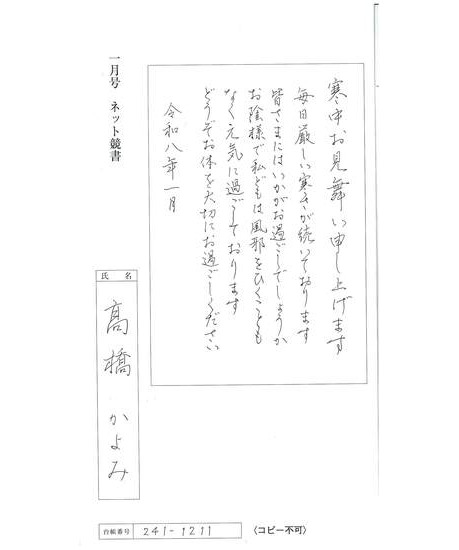 寒中お見舞い申し上げます
毎日厳しい寒さが続いております
皆さまにはいかがお過ごしでしょうか
お陰様で私どもは風邪をひくことも
なく元気に過ごしております
どうぞお体を大切にお過ごしください
令和八年一月
一月号 ネット競書
氏名
髙橋 かよみ
台帳番号 241-1211
〈コピー不可〉